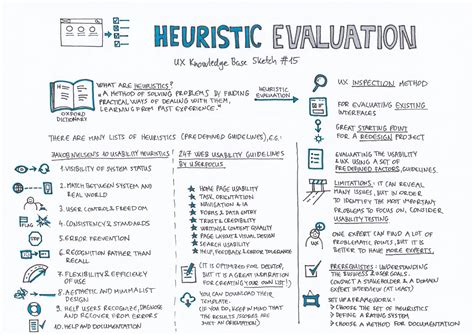 HEURISTIC EVALUATION
UX KNOWLEDGE BASE SKETCH #15
OXFORD
DICTIONARY
WHAT ARE HEURISTICS?
"A METHOD OF SOLVING PROBLEMS BY FINDING
PRACTICAL WAYS OF DEALING WITH THEM,
LEARNING FROM PAST EXPERIENCE."
HEURISTIC
EVALUATION
THERE ARE MANY LISTS OF HEURISTICS (PREDEFINED GUIDELINES), E.G.:
JAKOB NIELSEN'S 10 USABILITY HEURISTICS
1. VISIBILITY OF SYSTEM STATUS
2. MATCH BETWEEN SYSTEM AND
REAL WORLD
3. USER CONTROL & FREEDOM
FLAG
4. CONSISTENCY & STANDARDS
5. ERROR PREVENTION
6. RECOGNITION RATHER THAN
RECALL
7. FLEXIBILITY & EFFICIENCY
OF USE
8. AESTHETIC AND MINIMALIST
DESIGN
9. HELP USERS RECOGNIZE, DIAGNOSE
AND RECOVER FROM ERRORS
10. HELP AND DOCUMENTATION
247 WEB USABILITY GUIDELINES
BY USERFOCUS
HOME PAGE USABILITY
TASK ORIENTATION
NAVIGATION & IA
FORMS & DATA ENTRY
TRUST & CREDIBILITY
WRITING & CONTENT QUALITY
PAGE LAYOUT & VISUAL DESIGN
SEARCH USABILITY
HELP, FEEDBACK & ERROR TOLERANCE
(IT IS OPTIMIZED FOR DESKTOP,
BUT IT IS A GREAT INSPIRATION
FOR CREATING YOUR OWN LIST!)
YOU CAN DOWNLOAD THEIR
TEMPLATE.
(IF YOU DO, KEEP IN MIND THAT
THE RESULTS/SCORES ARE
JUST AN ORIENTATION)
UX INSPECTION METHOD
FOR EVALUATING EXISTING
INTERFACES
GREAT STARTING POINT
FOR A REDESIGN PROJECT
EVALUATING THE USABILITY
& UX USING A SET OF
PREDEFINED FACTORS, GUIDELINES.
LIMITATIONS: IT CAN REVEAL
MANY ISSUES, BUT IN ORDER
TO IDENTIFY THE MOST IMPORTANT
PROBLEMS TO FOCUS ON, CONSIDER
USABILITY TESTING.
UX
ONE EXPERT CAN FIND A LOT OF
PROBLEMATIC POINTS, BUT IT IS
BETTER TO HAVE MORE EXPERTS.
PREREQUISITES: UNDERSTANDING
THE BUSINESS & USER GOALS.
CONDUCT A STAKEHOLDER & A DOMAIN
EXPERT INTERVIEW (AT LEAST)
SET UP A FRAMEWORK:
CHOOSE THE SET OF HEURISTICS
DEFINE A RATING SYSTEM
CHOOSE A METHOD FOR DOCUMENTATION